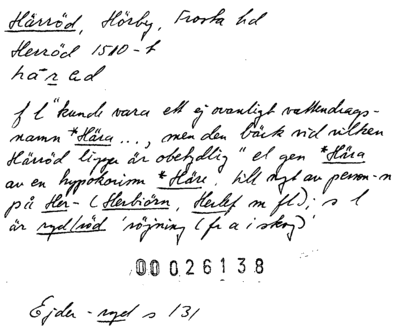 Härröd, Hörby, Frosta hd
Herröd 1510-t
hä·r ad
f l "kunde vara ett ej ovanligt vattendrags-
namn *Hära ..., men den bäck vid vilken
Härröd ligger är obetydlig" el gen *Hära
av en hypokorism *Häre, till ngt av person-n
på Her- (Herbiörn, Herlef m fl); s l
är ryd/röd 'röjning (fr a i skog)'
00026138
Ejder - ryd s 131